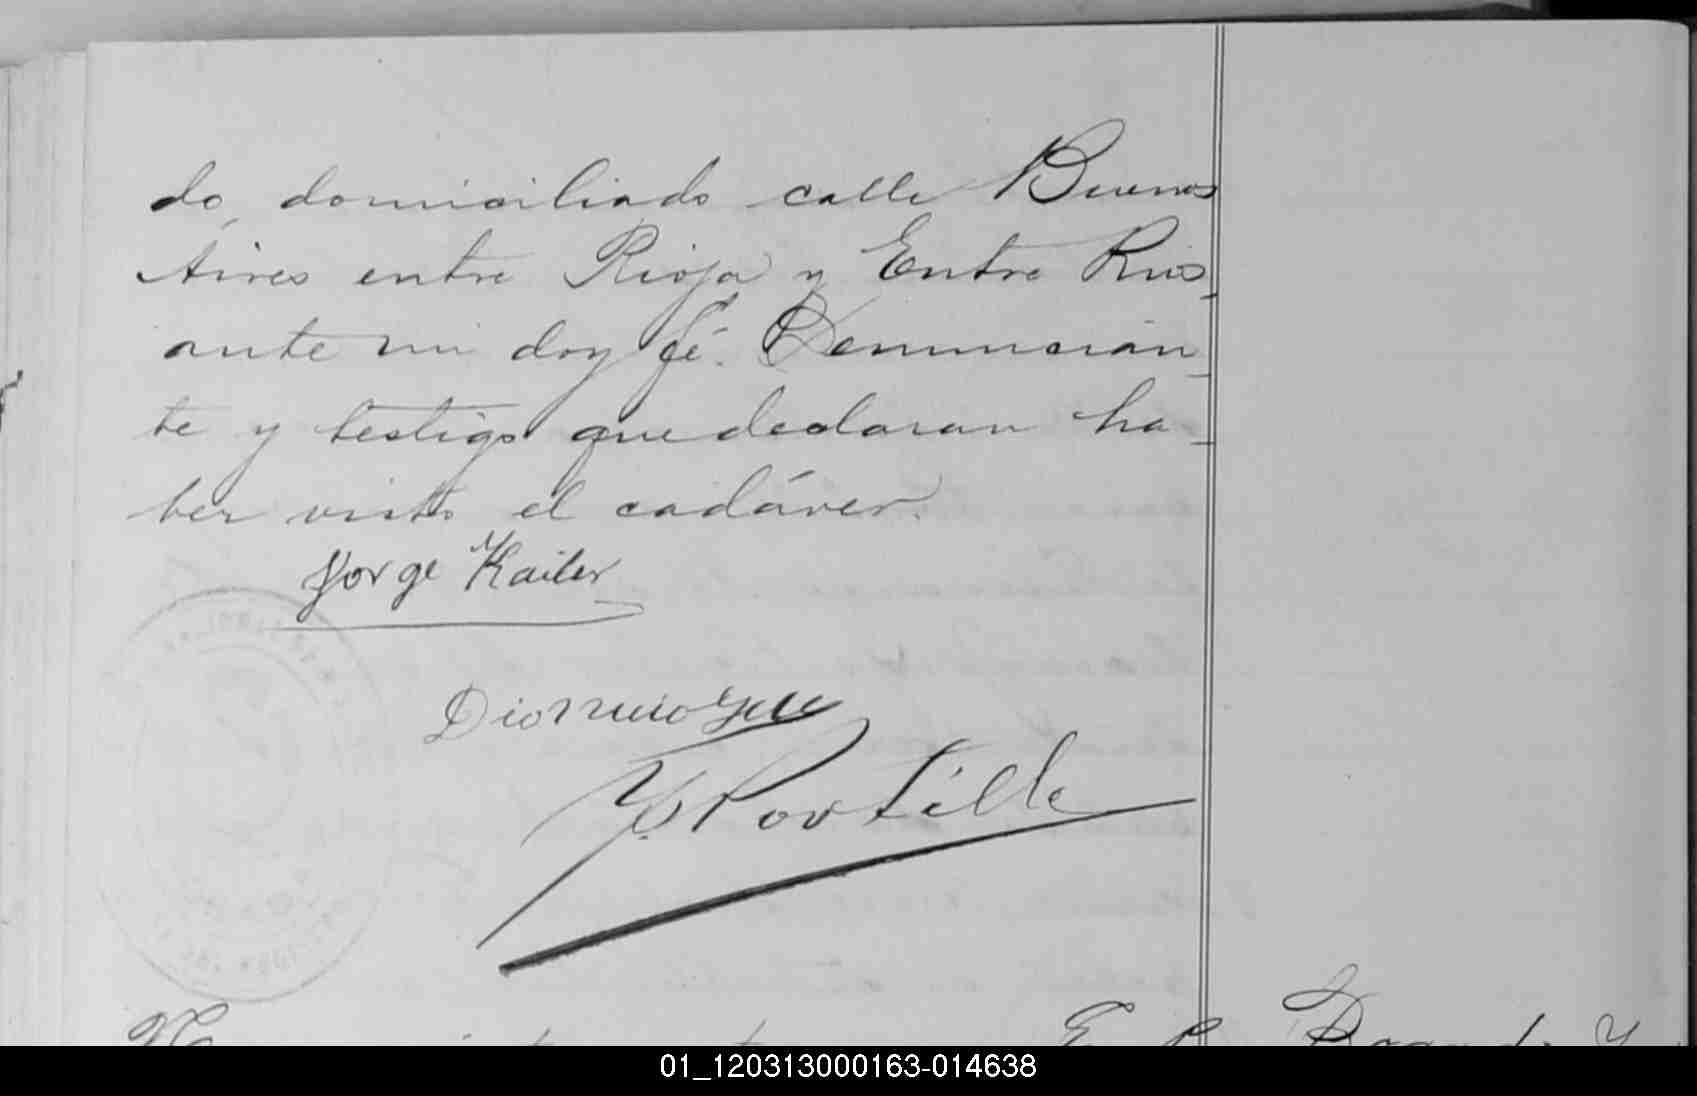 do, domiciliado calle Buenos
Aires entre Rioja y Entre Rios,
ante mi doy fé. Denuncian-
te y testigo que declaran ha-
ber visto el cadáver.
Jorge Kailer
Dionicio
Portillo
01_120313000163-014638